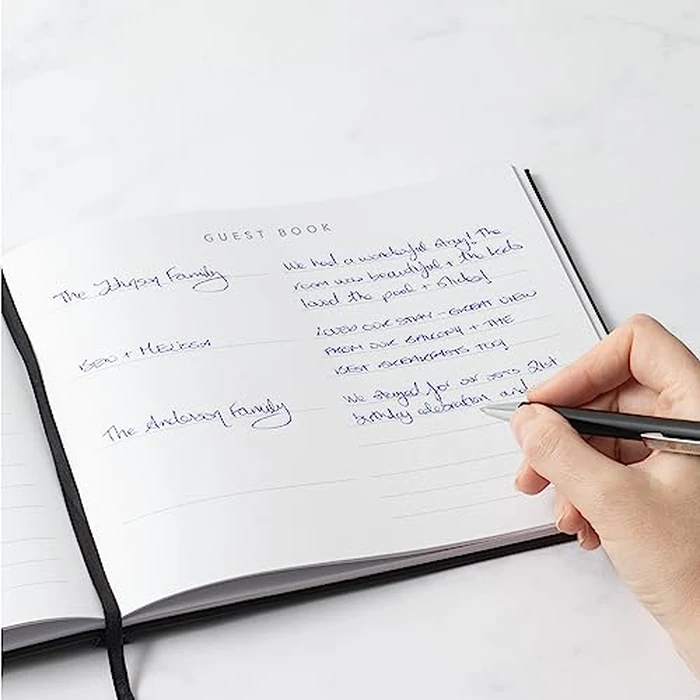 GUEST BOOK
The Johnson Family
We had a wonderful stay! The
room was beautiful & the kids
loved the pool + slides!
BEN + MELISSA
LOVED OUR STAY - GREAT VIEW
FROM OUR BALCONY + THE
BEST BREAKFASTS TOO!
The Anderson Family
We stayed for our 21st
birthday celebration and